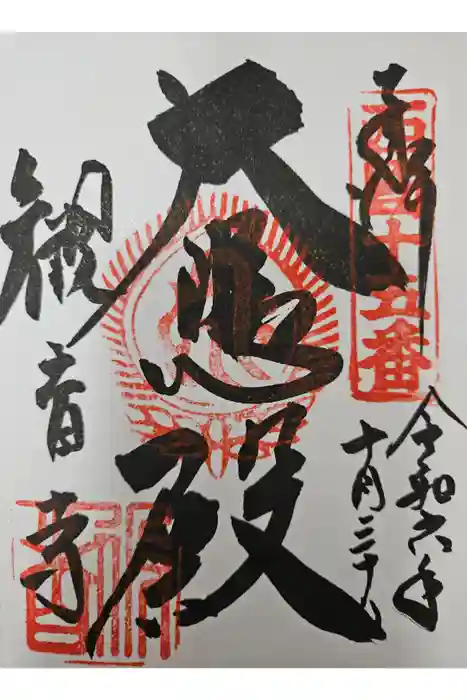 奉拝
西国十五番
令和六年
十月三十日
大悲殿
観音寺